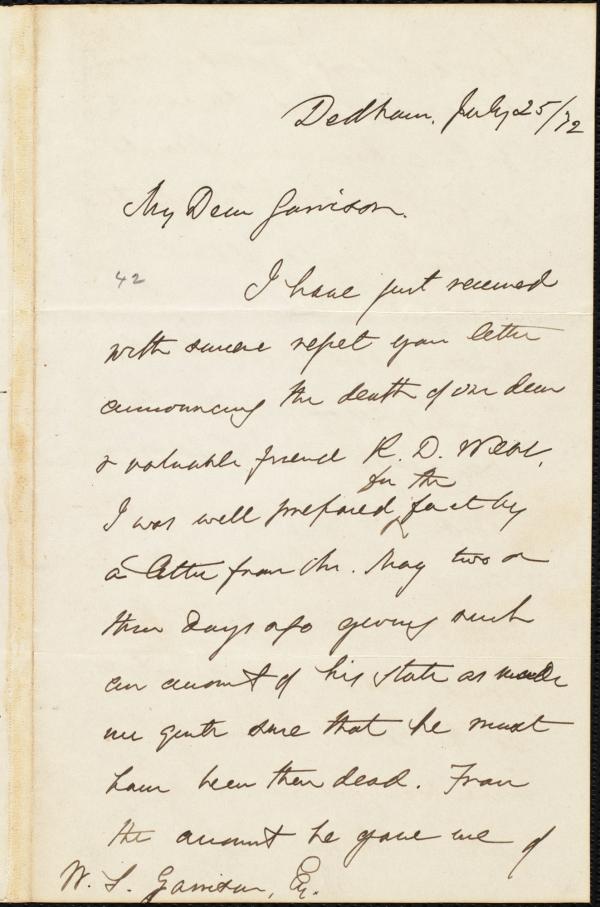 Dedham, July 25/72
My Dear Garrison.
42
I have just received
with sincere regret your letter
announcing the death of our dear
& valuable friend R. D. Webb.
I was well prepared for the fact by
a letter from Mr. May two or
three days ago giving such
an account of his state as made
me quite sure that he must
have been then dead. From
the account he gave me of
W. L. Garrison, Esq.